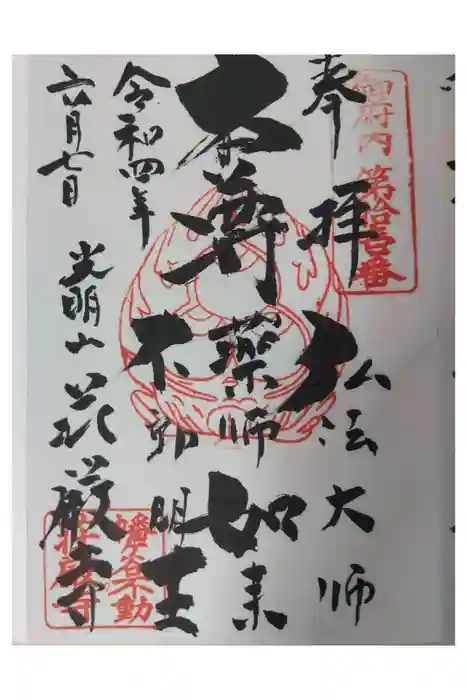 御府内 第拾壱番
奉拝 弘法大師
本尊 薬師如来
不動明王
令和四年
六月七日
光明山 荘厳寺
幡ヶ谷不動
荘厳寺